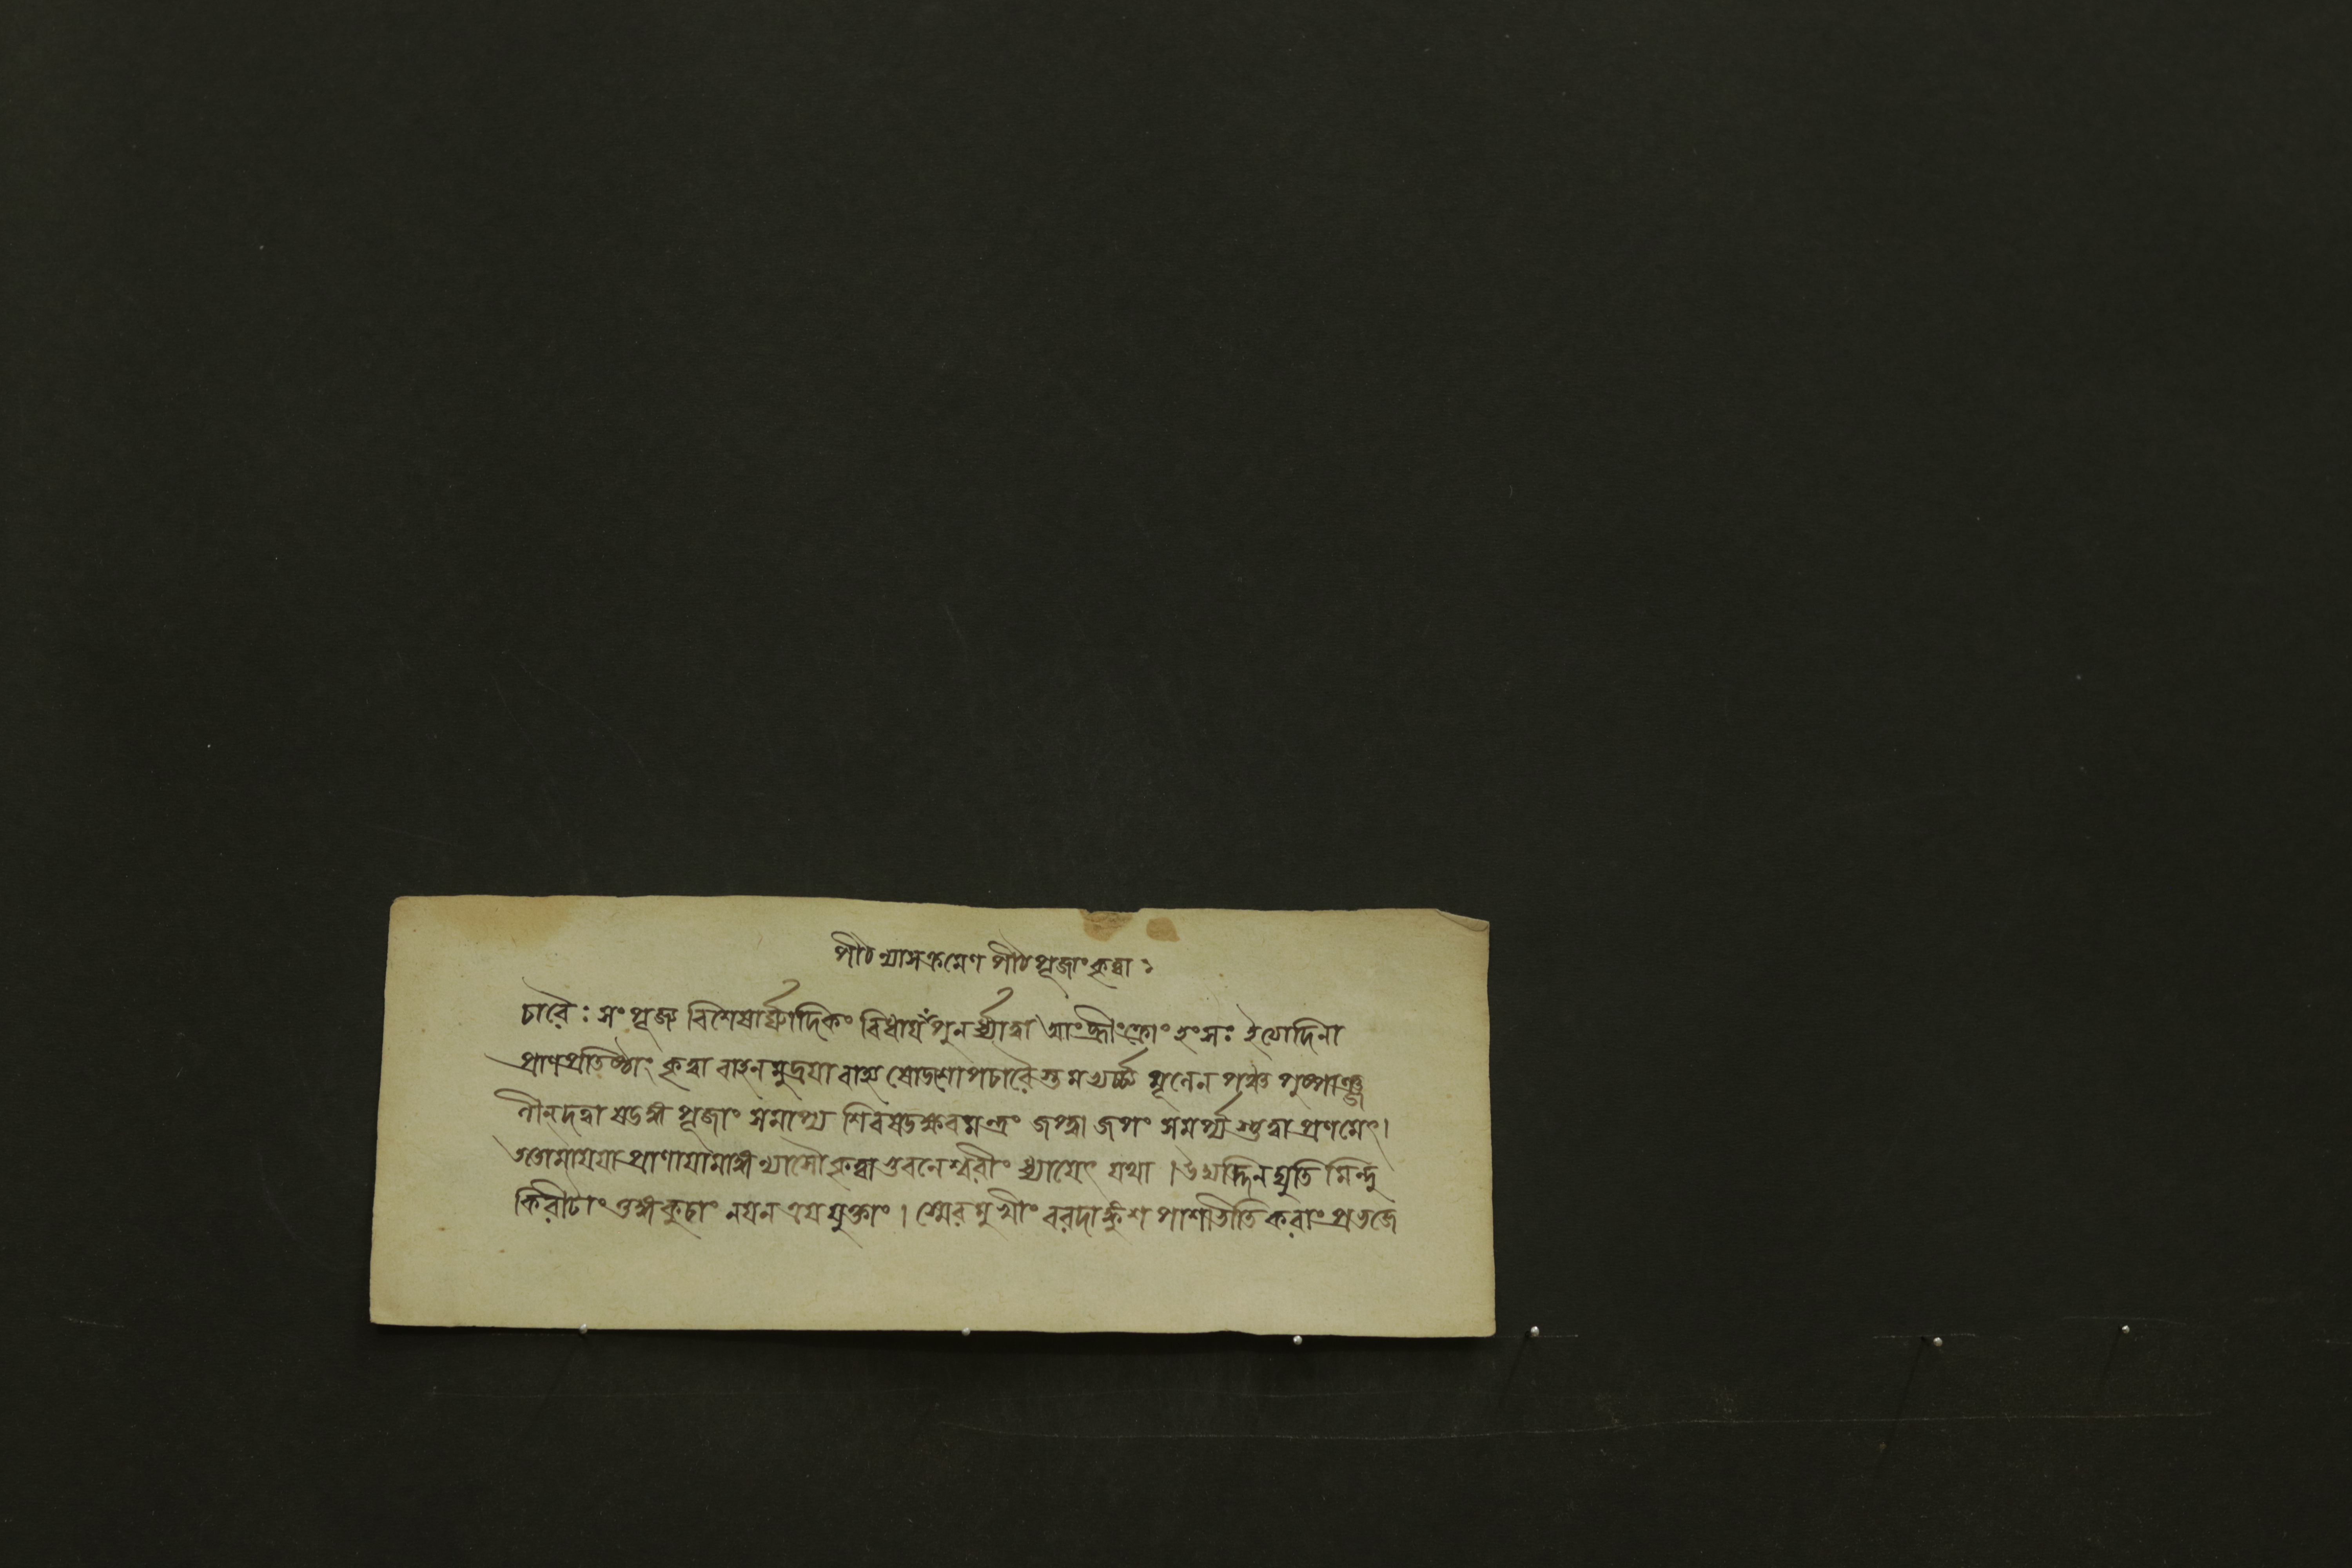 পীঠন্যাসক্রমেণ পীঠপূজাং কৃত্বা ঃ
চারৈঃ সংপূজ্য বিশেষার্ঘ্যাদিকং বিধায় পুনর্ধ্যাত্বা আং হ্রীং ক্রোং হংসঃ ইত্যাদিনা
প্রাণপ্রতিষ্ঠাং কৃত্বা বাহনমুদ্রয়া বাহ্য ষোডশোপচারৈস্তমভ্যর্চ্চ্য মূলেন পঞ্চ পুষ্পাঞ্জ
লীন্দত্বা ষডঙ্গ পূজাং সমাপ্য শিবষডক্ষরমন্ত্রং জপ্ত্বা জপং সমর্প্য স্তুত্বা প্রণমেৎ।
ততোমায়য়া প্রাণায়ামাঙ্গন্যাসৌ কৃত্বা ভুবনেশ্বরীং ধ্যায়েৎ যথা । উদ্যদ্দিনদ্যুতি মিন্দু
কিরীটাং তুঙ্গকুচাং নয়নত্রয়যুক্তাং । স্মেরমুখীং বরদাঙ্কুশ পাশাভীতি করাং প্রভজে